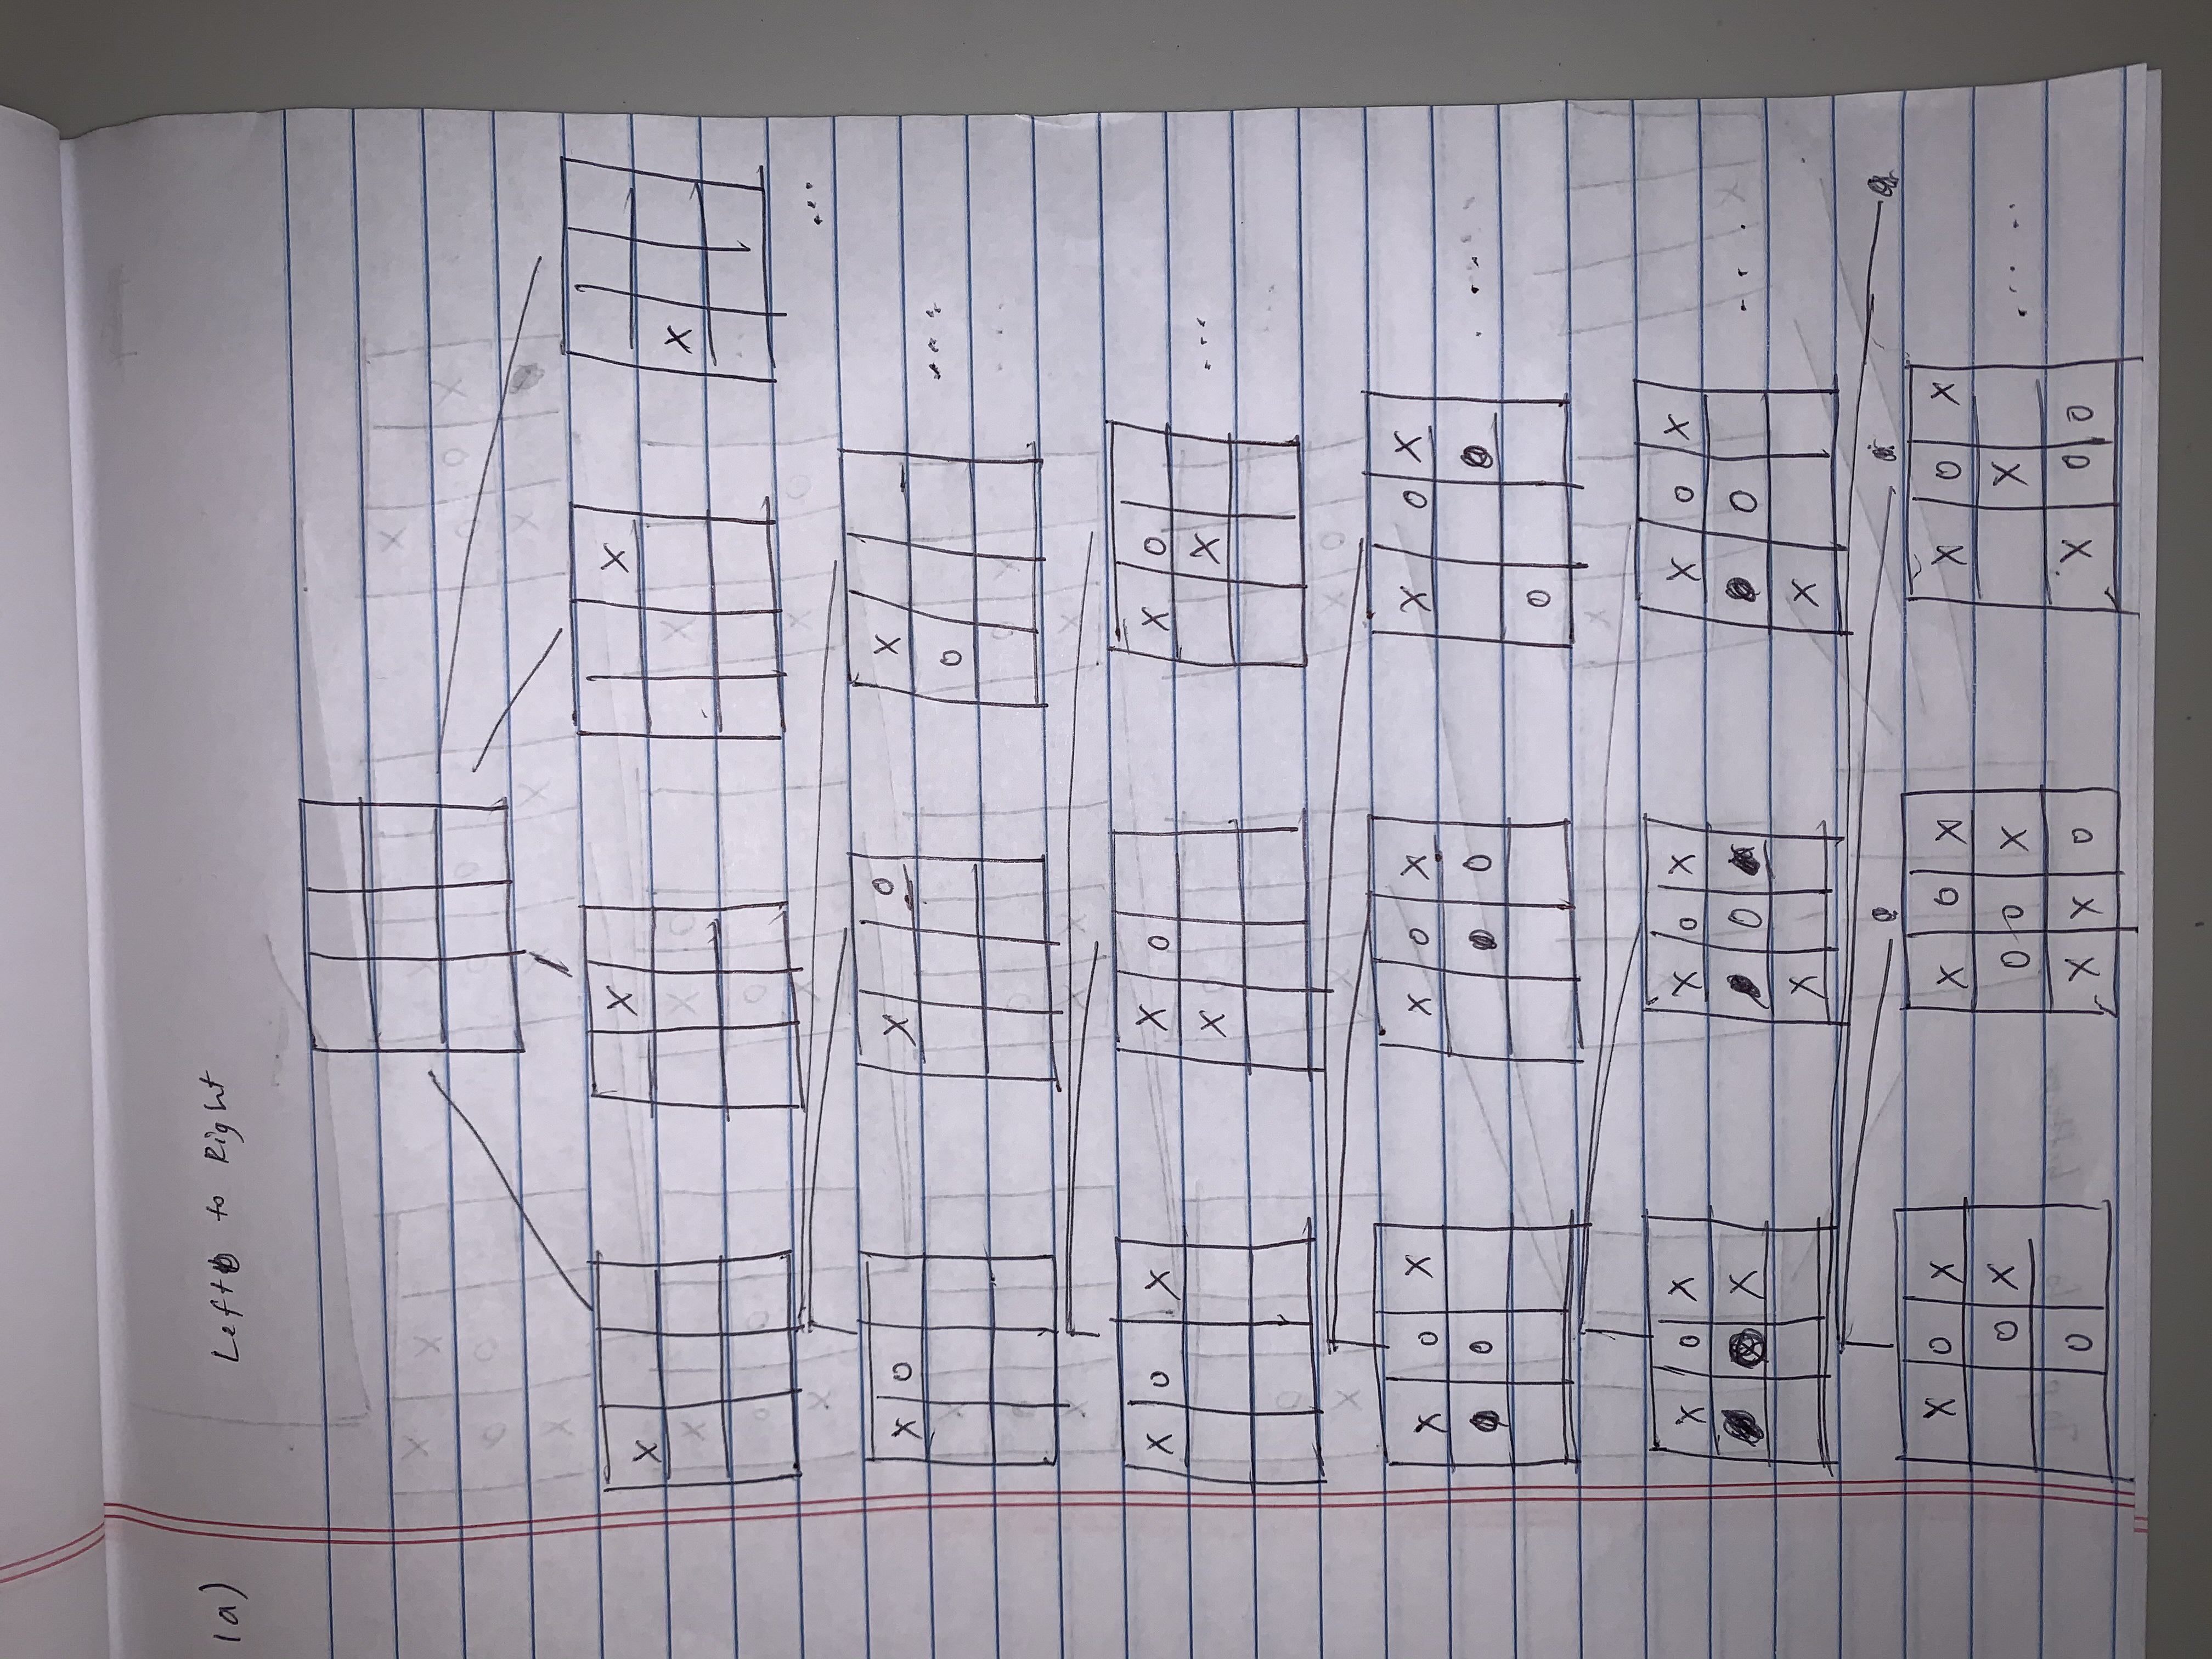 1a) Left to Right
X X X
X
X O X O X
O
X O X X O X O
X X
X O X X O X X O X
O O
O
X O X X O X X O X
X O O
X X
X O X X O X X O X
O X O O X X
O X X O X O O